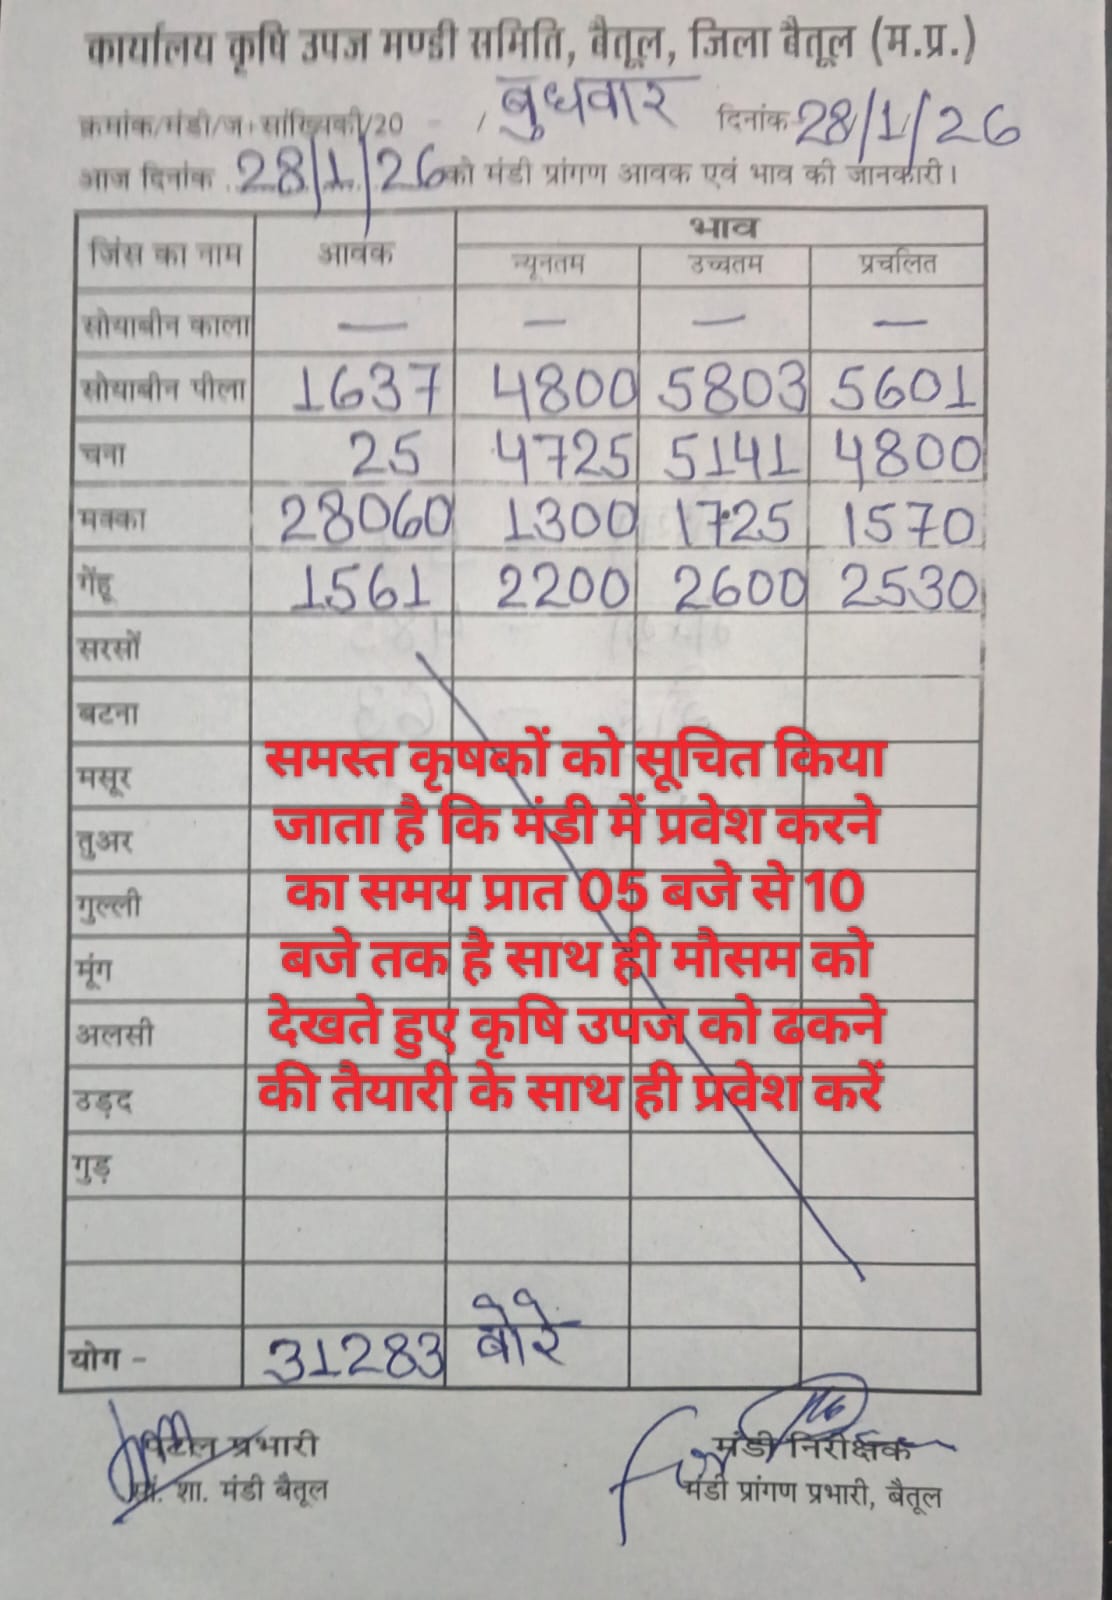 कार्यालय कृषि उपज मण्डी समिति, बैतूल, जिला बैतूल (म.प्र.)
क्रमांक/मंडी/ज. सांख्यिकी/20 - / बुधवार दिनांक 28/1/26
आज दिनांक 28/1/26 को मंडी प्रांगण आवक एवं भाव की जानकारी।
भाव
जिंस का नाम आवक न्यूनतम उच्चतम प्रचलित
सोयाबीन काला — — — —
सोयाबीन पीला 1637 4800 5803 5601
चना 25 4725 5141 4800
मक्का 28060 1300 1725 1570
गेंहू 1561 2200 2600 2530
सरसों
बटना
समस्त कृषकों को सूचित किया
मसूर
जाता है कि मंडी में प्रवेश करने
तुअर
का समय प्रात 05 बजे से 10
गुल्ली
बजे तक है साथ ही मौसम को
मूंग
देखते हुए कृषि उपज को ढकने
अलसी
की तैयारी के साथ ही प्रवेश करें
उड़द
गुड़
योग - 31283 बोरे
प्रभारी मंडी निरीक्षक
शा. मंडी बैतूल मंडी प्रांगण प्रभारी, बैतूल